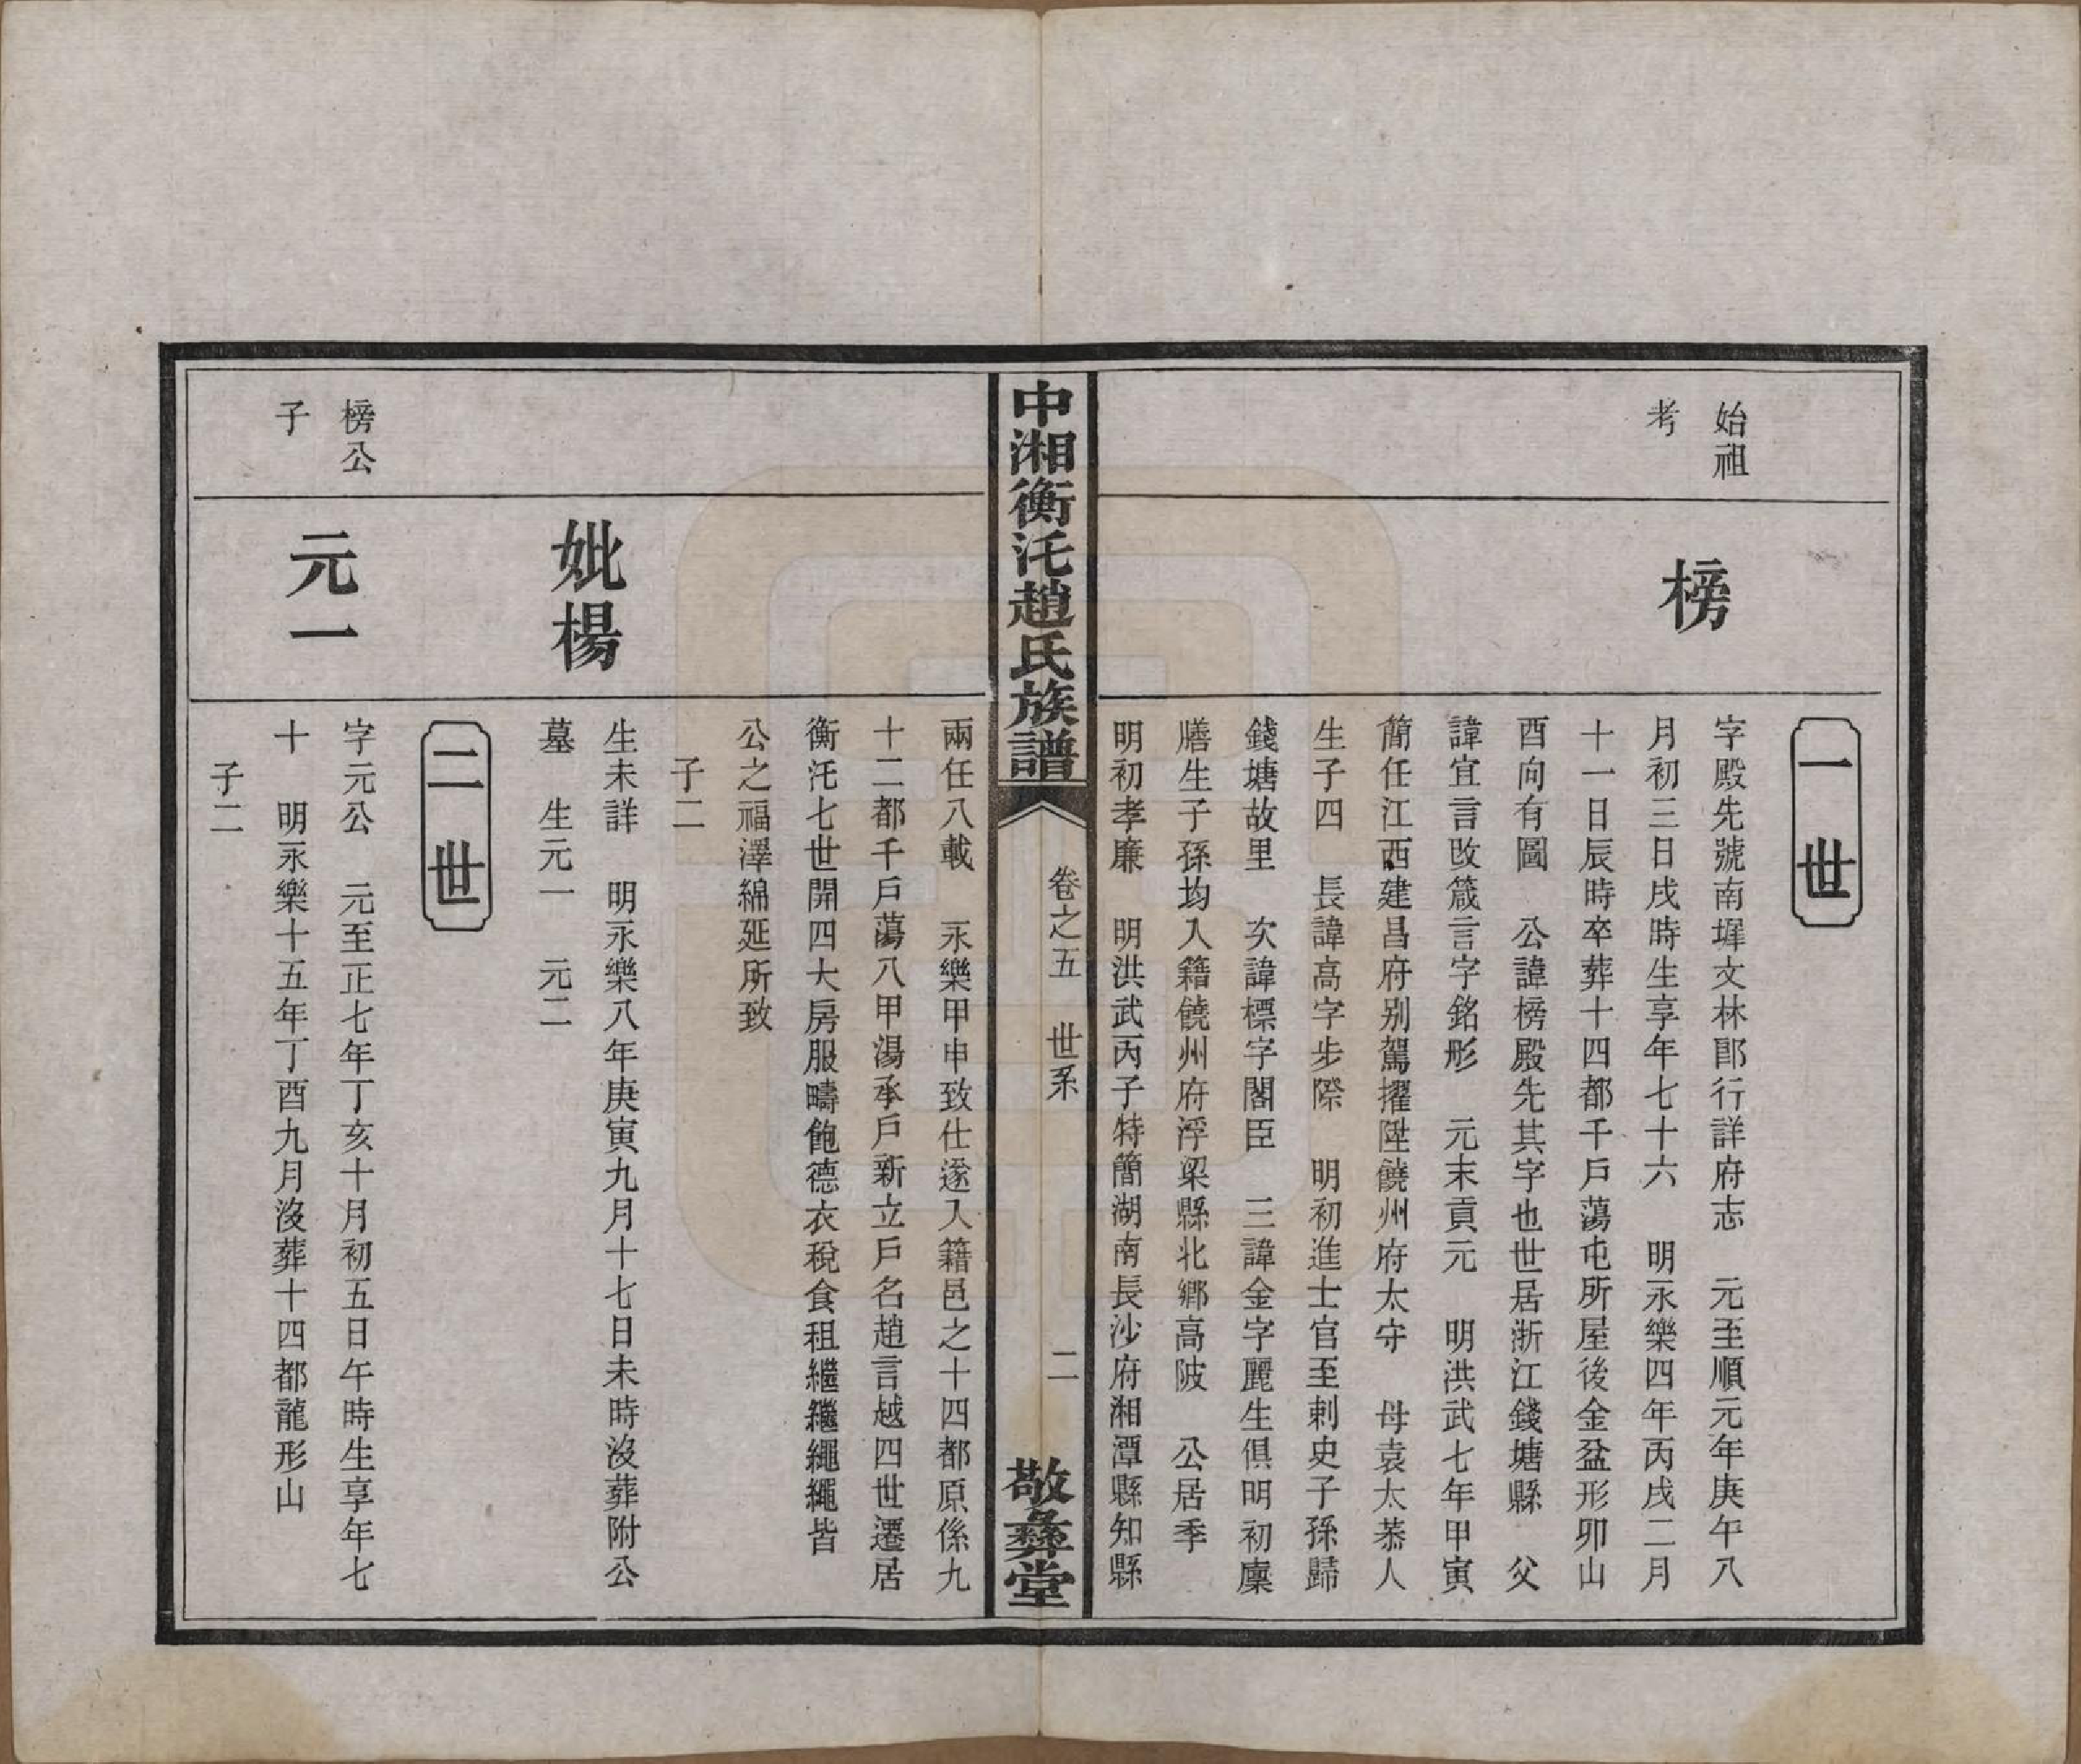 一世
始祖
考
榜
字殿先號南墀文林郎行詳府志　元至順元年庚午八
月初三日戌時生享年七十六　明永樂四年丙戌二月
十一日辰時卒葬十四都千戶蕩屯所屋後金盆形卯山
酉向有圖　公諱榜殿先其字也世居浙江錢塘縣　父
諱宜言改箴言字銘彤　元末貢元　明洪武七年甲寅
簡任江西建昌府別駕擢陞饒州府太守　母袁太恭人
生子四　長諱高字步際　明初進士官至刺史子孫歸
錢塘故里　次諱標字閣臣　三諱金字麗生俱明初廩
膳生子孫均入籍饒州府浮梁縣北鄉高陂　公居季
明初孝廉　明洪武丙子特簡湖南長沙府湘潭縣知縣
中湘衡汑趙氏族譜
卷之五　世系
二
敬彝堂
兩任八載　永樂甲申致仕遂入籍邑之十四都原係九
十二都千戶蕩八甲湯承戶新立戶名趙言越四世遷居
衡汑七世開四大房服疇飽德衣稅食租繼繼繩繩皆
公之福澤綿延所致
子二
妣楊
生未詳　明永樂八年庚寅九月十七日未時沒葬附公
墓　生元一　元二
二世
榜公
子
元一
字元公　元至正七年丁亥十月初五日午時生享年七
十　明永樂十五年丁酉九月沒葬十四都龍形山
子二